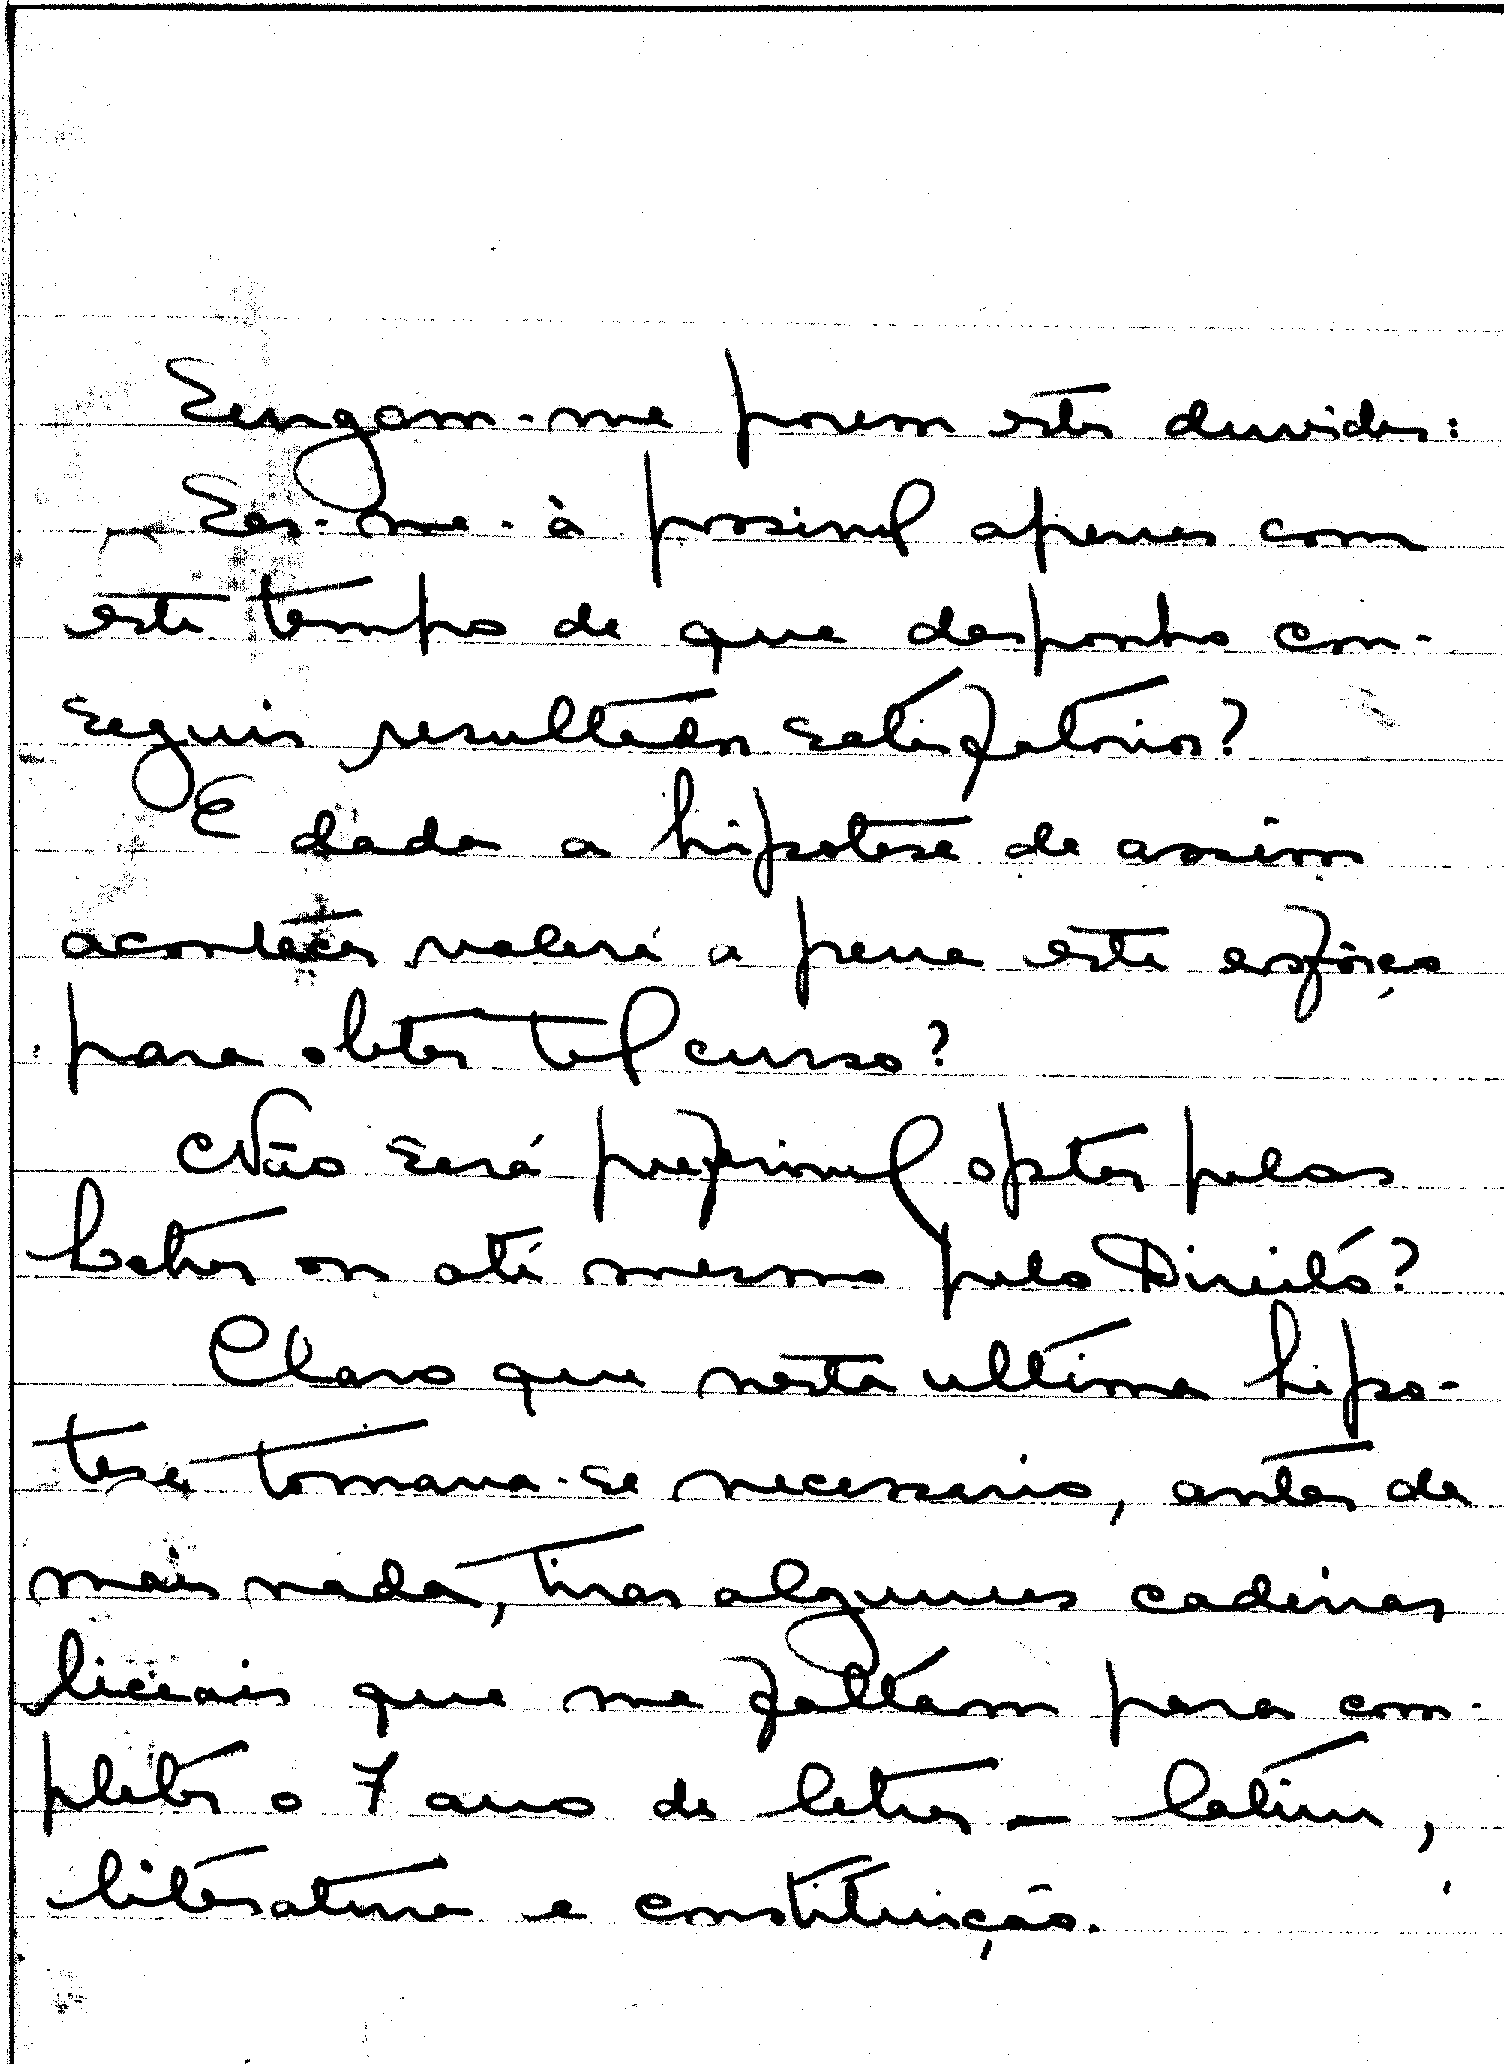 Surgam-me porem estas duvidas:
Ser-me-à possivel apenas com
este tempo de que desponho con-
seguir resultados satisfatórios?
E dada a hipotese de assim
acontecer valerá a pena este esfôrço
para obter tal curso?
Não será preferivel optar pelas
Letras ou até mesmo pelo Direito?
Claro que nesta ultima hipo-
tese tornava-se necessario, antes de
mais nada, tirar algumas cadeiras
liceais que me faltam para com-
pletar o 7 ano de letras - latim,
literatura e constituição.